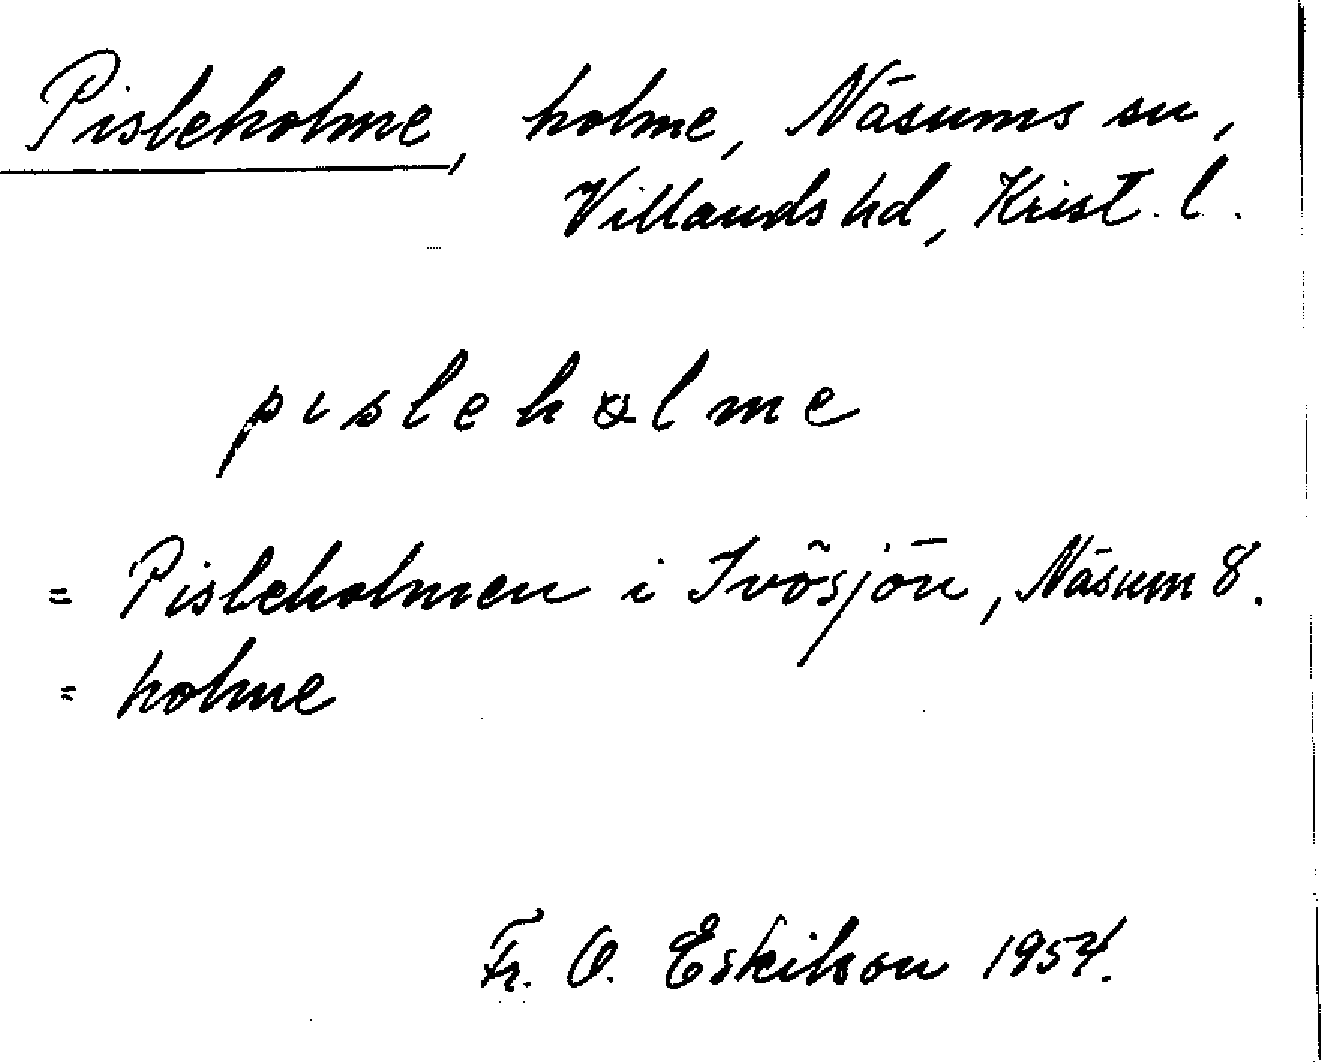 Pisleholme, holme, Näsums sn,
Villands hd, Krist. l.
pıslehɷlme
= Pisleholmen i Ivösjön, Näsum 8.
= holme
Fr. O. Eskilson 1954.